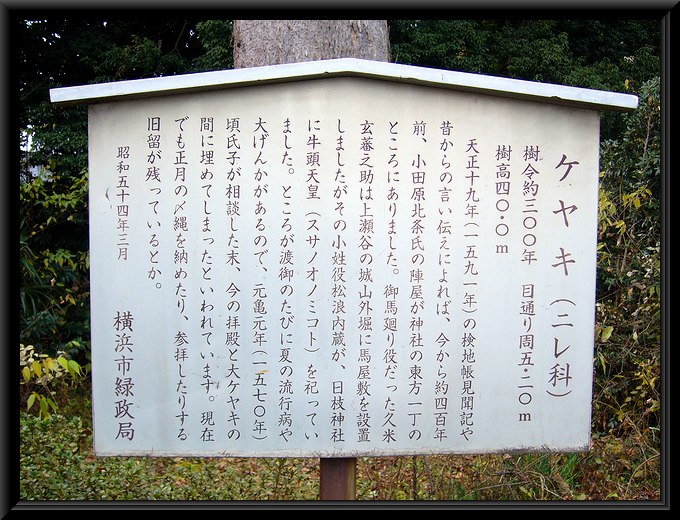 ケヤキ(ニレ科)
樹令約三〇〇年　目通り周五・二〇m
樹高四〇・〇m
天正十九年(一五九一年)の検地帳見聞記や
昔からの言い伝えによれば、今から約四百年
前、小田原北条氏の陣屋が神社の東方一丁の
ところにありました。御馬廻り役だった久米
玄蕃之助は上瀬谷の城山外堀に馬屋敷を設置
しましたがその小姓役松浪内蔵が、日枝神社
に牛頭天皇(スサノオノミコト)を祀ってい
ました。ところが渡御のたびに夏の流行病や
大げんかがあるので、元亀元年(一五七〇年)
頃氏子が相談した末、今の拝殿と大ケヤキの
間に埋めてしまったといわれています。現在
でも正月の〆縄を納めたり、参拝したりする
旧留が残っているとか。
昭和五十四年三月
横浜市緑政局